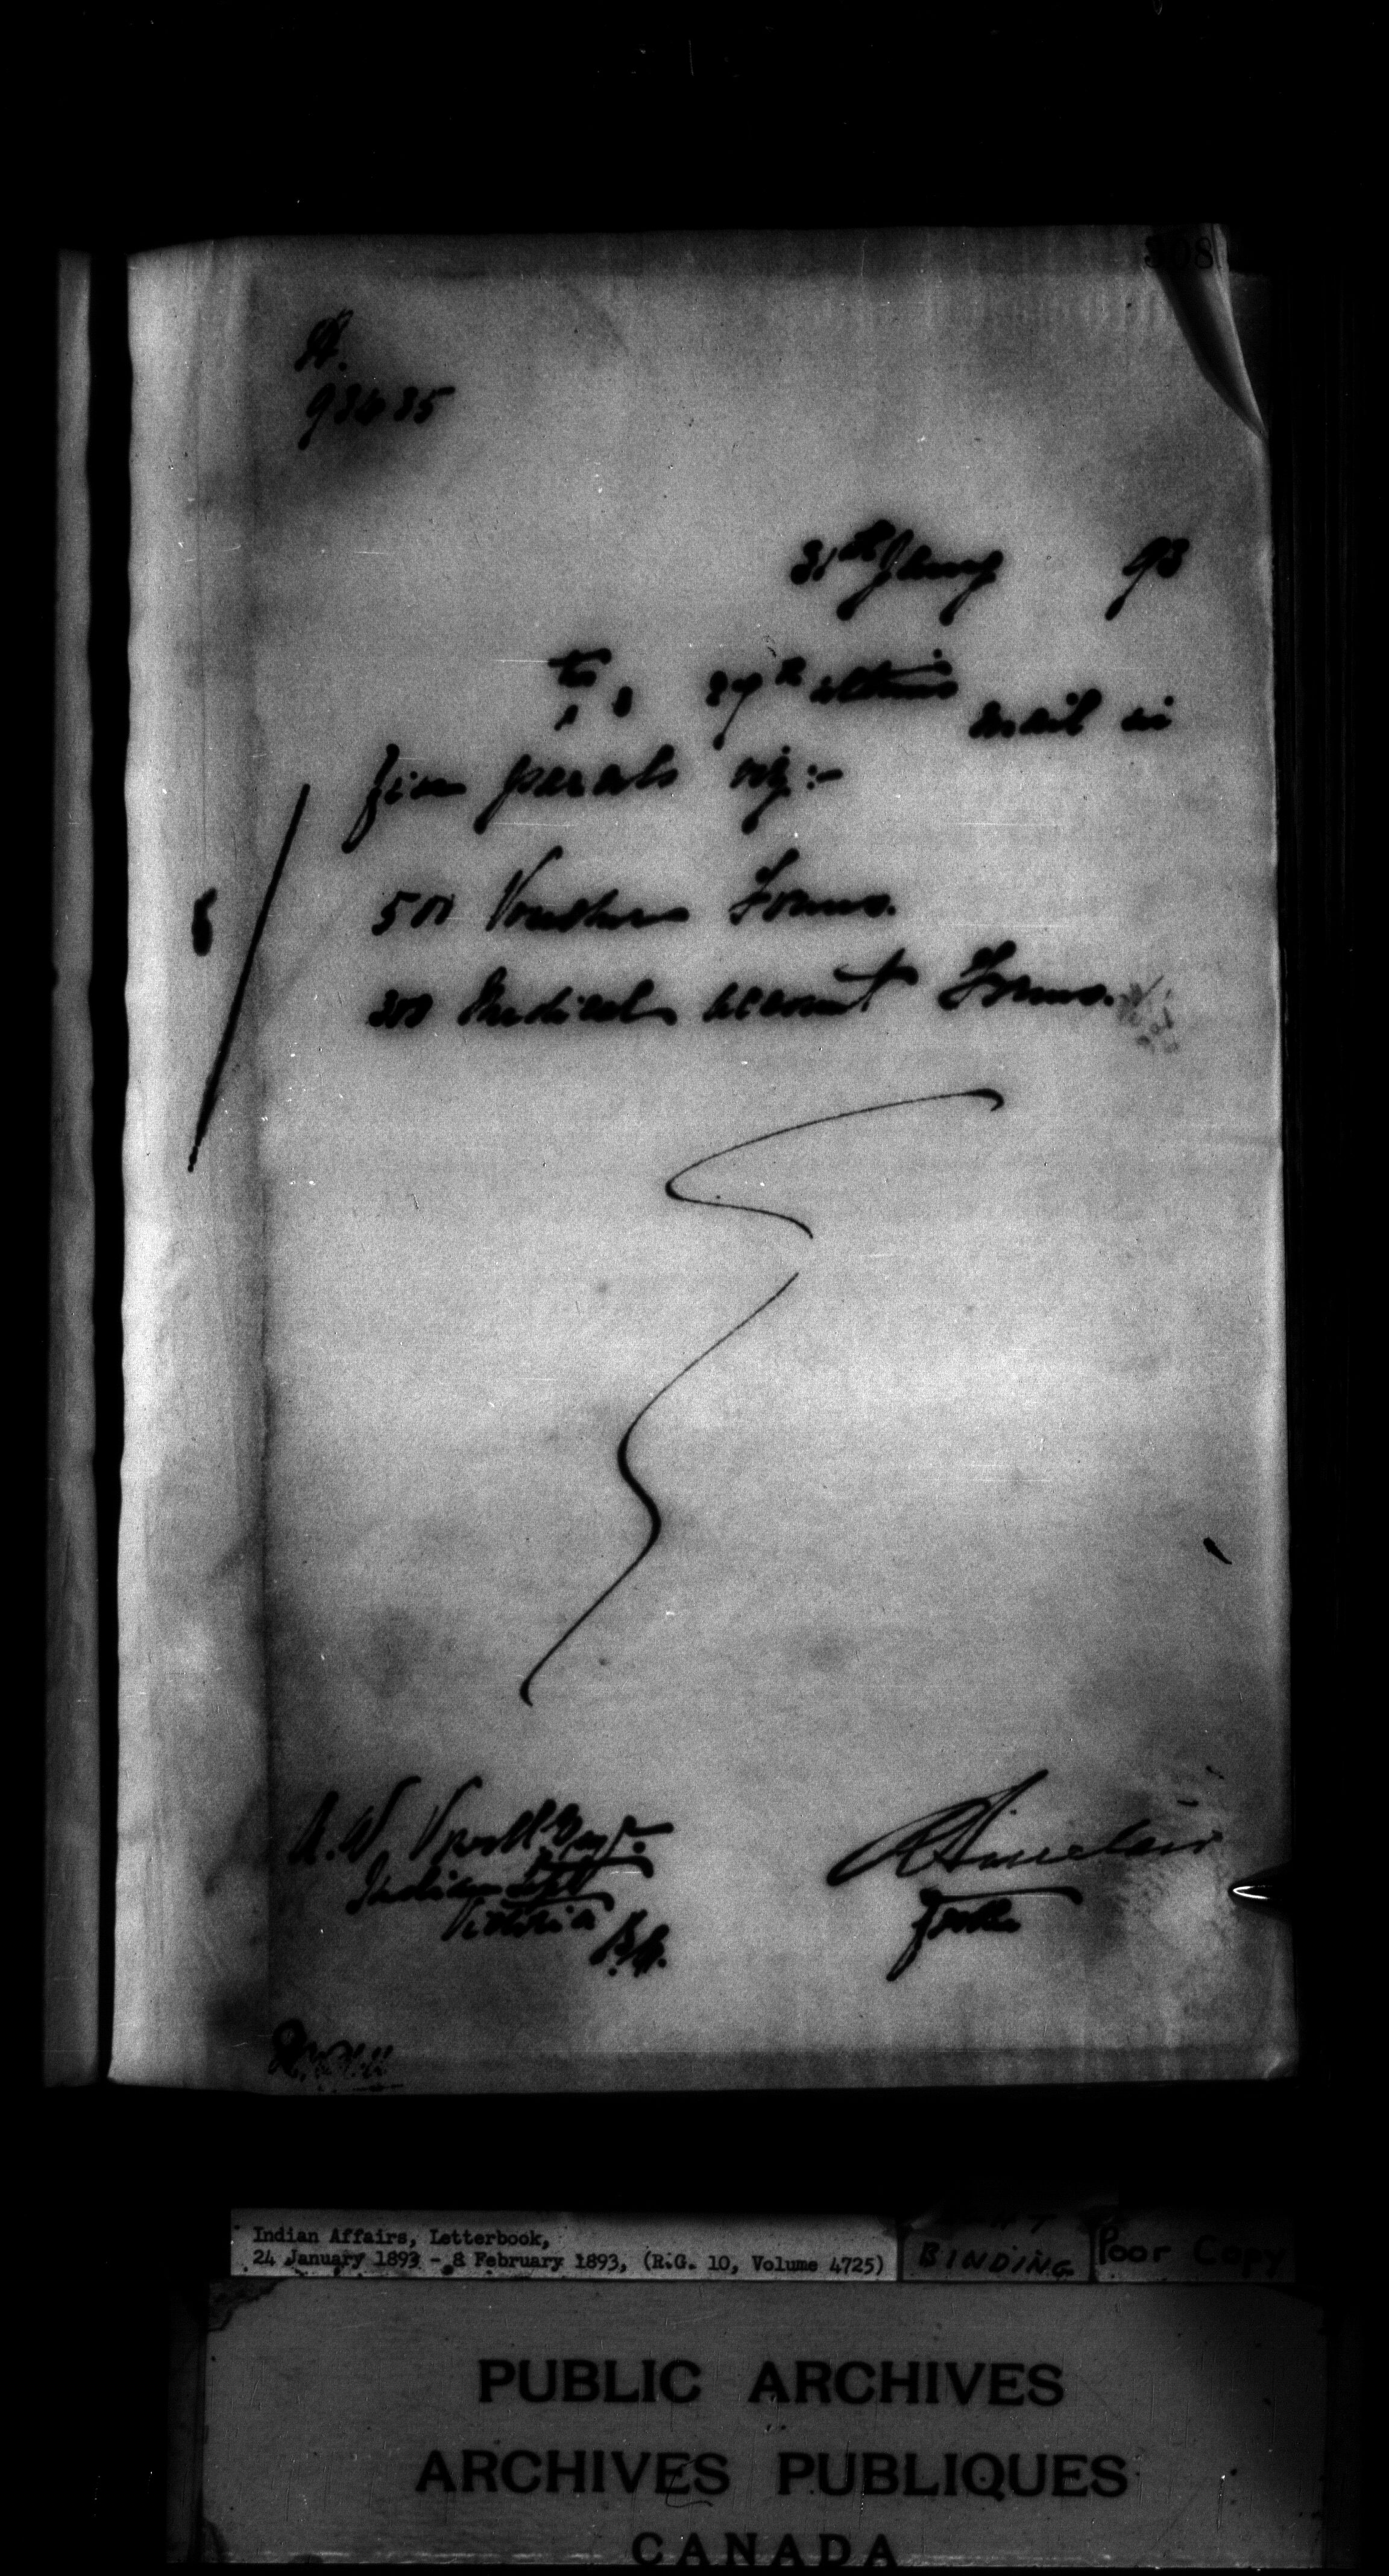 508
A.
93635
31st Jany 93
27th ultimo mail in
five parcels viz:-
500 Vouchers Forms.
300 Medical account Forms.
A. W. Vowell Esqr.
Indian Supt
Victoria B.C.
R Sinclair
for
Indian Affairs, Letterbook,
24 January 1893 - 8 February 1893, (R.G. 10, Volume 4725)
BINDING
Poor Copy
PUBLIC ARCHIVES
ARCHIVES PUBLIQUES
CANADA